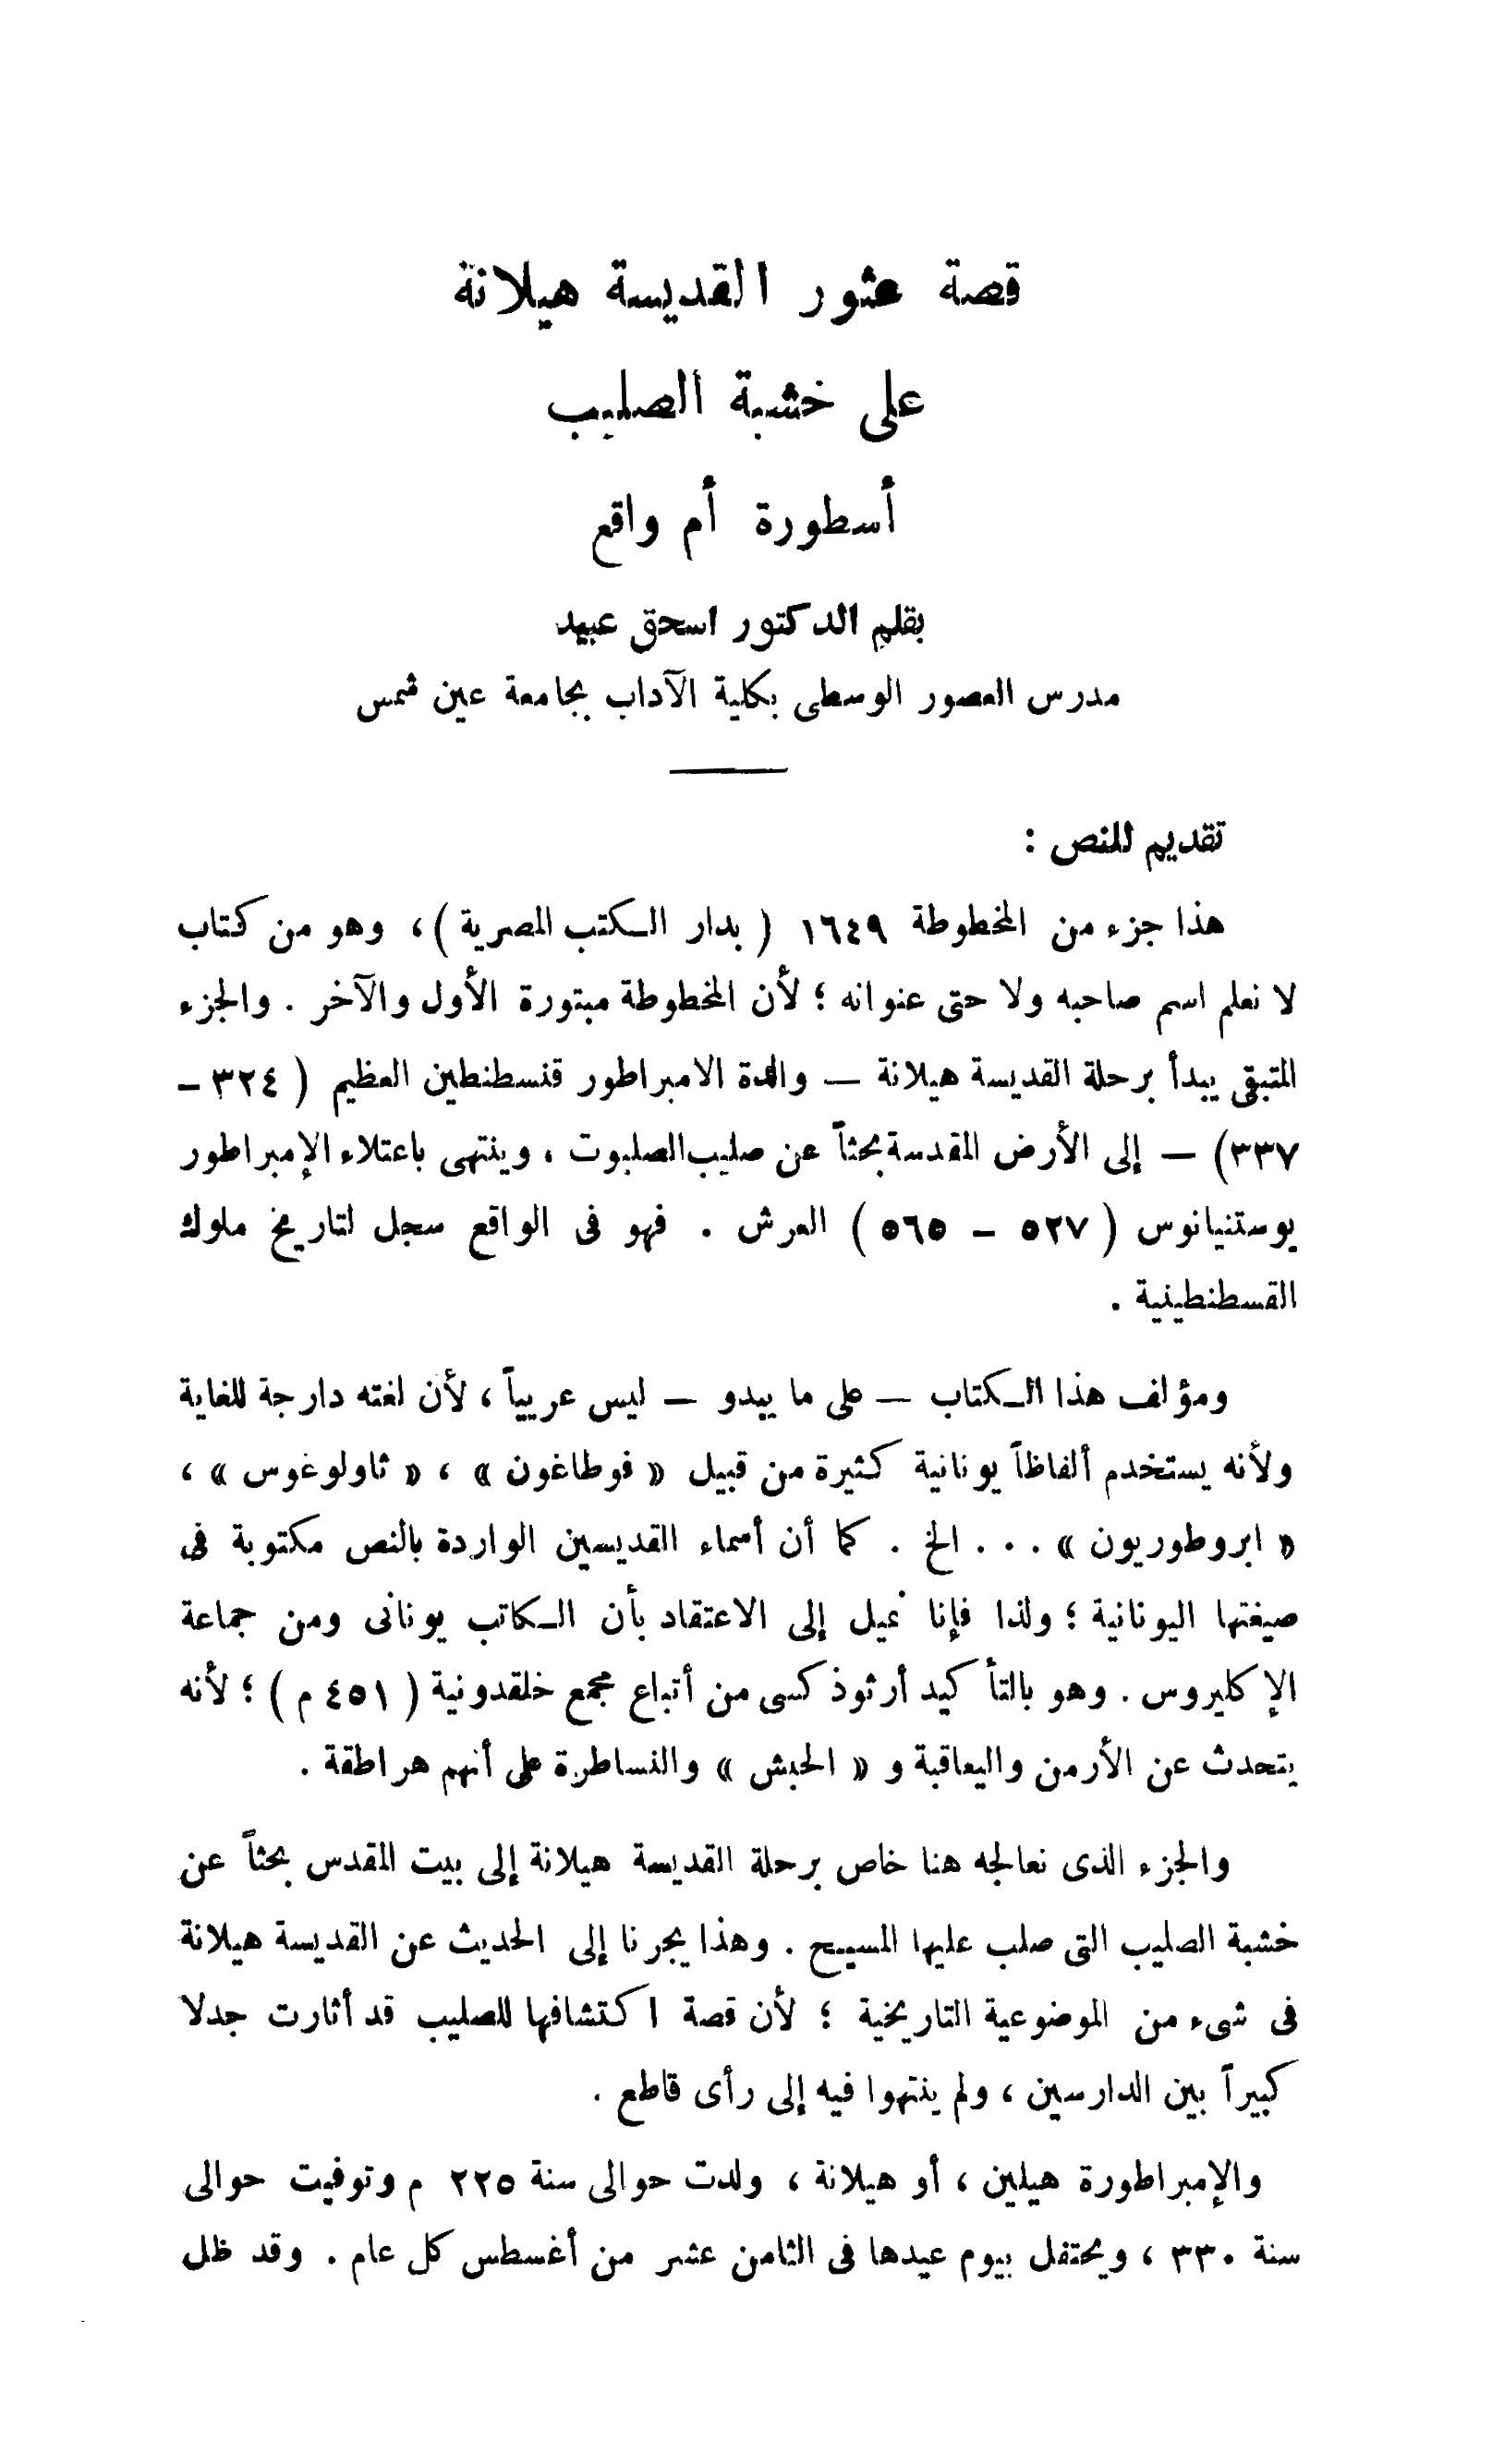 قصة عثور القديسة هيلانة
على خشبة الصليب
أسطورة أم واقع
بقلم الدكتور اسحق عبيد
مدرس العصور الوسطى بكلية الآداب بجامعة عين شمس
تقديم للنص :
هذا جزء من المخطوطة ١٦٤٩ ( بدار الكتب المصرية ) ، وهو من كتاب
لا نعلم اسم صاحبه ولا حتى عنوانه ؛ لأن المخطوطة مبتورة الأول والآخر . والجزء
المتبقى يبدأ برحلة القديسة هيلانة — والدة الامبراطور قنسطنطين العظيم ( ٣٢٤ –
٣٣٧) — إلى الأرض المقدسة بحثاً عن صليب الصلبوت ، وينتهى باعتلاء الإمبراطور
يوستنيانوس ( ٥٢٧ – ٥٦٥ ) العرش . فهو فى الواقع سجل لتاريخ ملوك
القسطنطينية .
ومؤلف هذا الكتاب — على ما يبدو — ليس عربياً ، لأن لغته دارجة للغاية
ولأنه يستخدم ألفاظاً يونانية كثيرة من قبيل « فوطاغون » ، « ثاولوغوس » ،
« ابروطوريون » . . . الخ . كما أن أسماء القديسين الواردة بالنص مكتوبة فى
صيغتها اليونانية ؛ ولذا فإنا نميل إلى الاعتقاد بأن الكاتب يونانى ومن جماعة
الإكليروس . وهو بالتأكيد أرثوذكسى من أتباع مجمع خلقدونية ( ٤٥١ م ) ؛ لأنه
يتحدث عن الأرمن واليعاقبة و « الحبش » والنساطرة على أنهم هراطقة .
والجزء الذى نعالجه هنا خاص برحلة القديسة هيلانة إلى بيت المقدس بحثاً عن
خشبة الصليب التى صلب عليها المسيح . وهذا يجرنا إلى الحديث عن القديسة هيلانة
فى شىء من الموضوعية التاريخية ؛ لأن قصة اكتشافها للصليب قد أثارت جدلا
كبيراً بين الدارسين ، ولم ينتهوا فيه إلى رأى قاطع .
والإمبراطورة هيلين ، أو هيلانة ، ولدت حوالى سنة ٢٢٥ م وتوفيت حوالى
سنة ٣٣٠ ، ويحتفل بيوم عيدها فى الثامن عشر من أغسطس كل عام . وقد ظل